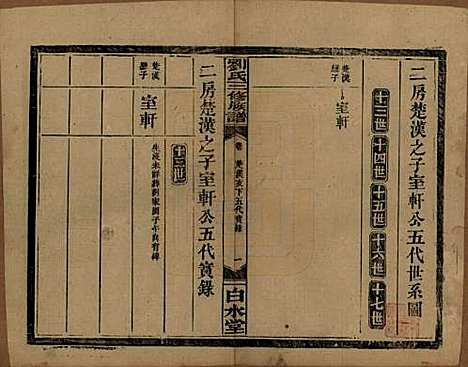 二房楚漢之子室軒公五代世系圖
十三世 十四世 十五世 十六世 十七世
楚漢
長子
室軒
劉氏三修族譜
卷 楚漢支下五代實錄 一
白水堂
二房楚漢之子室軒公五代實錄
十三世
楚漢
長子
室軒
生歿未詳葬劉家園子午向有碑